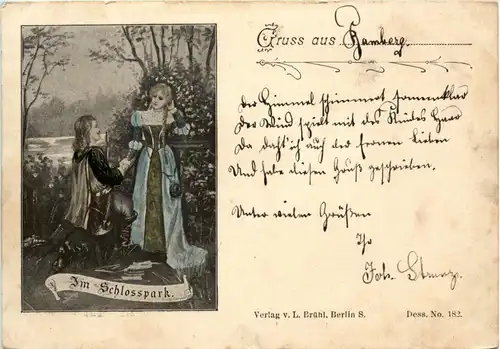 Gruss aus Bamberg.
Der Himmel schimmert sonnenklar
Der Wind spielt mit des Kindes Haar
Da dacht' ich auch der fernen Lieben
Und habe diesen Gruß geschrieben.
Unter vielen Grüßen
Ihr
Joh.
Im Schlosspark.
Verlag v. L. Brühl, Berlin S. Dess. No. 182.